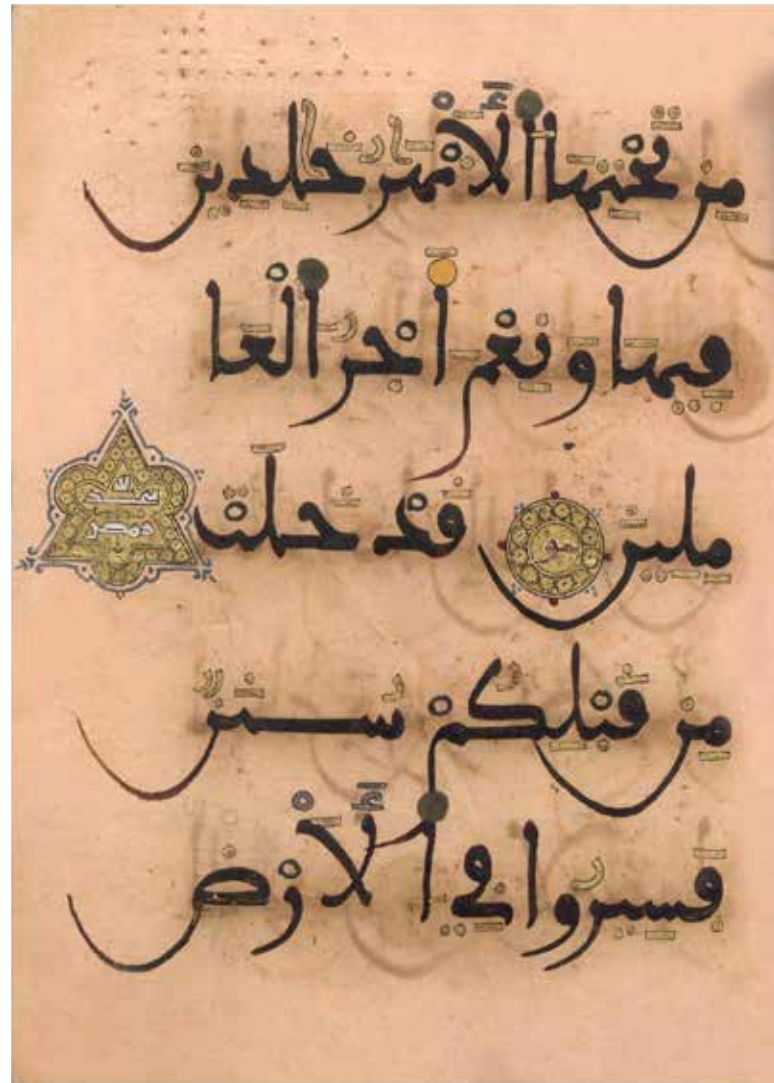 من تحتها الانهر خلدين
فيها ونعم اجر العا
ملين قد خلت
من قبلكم سنن
فسيروا في الارض